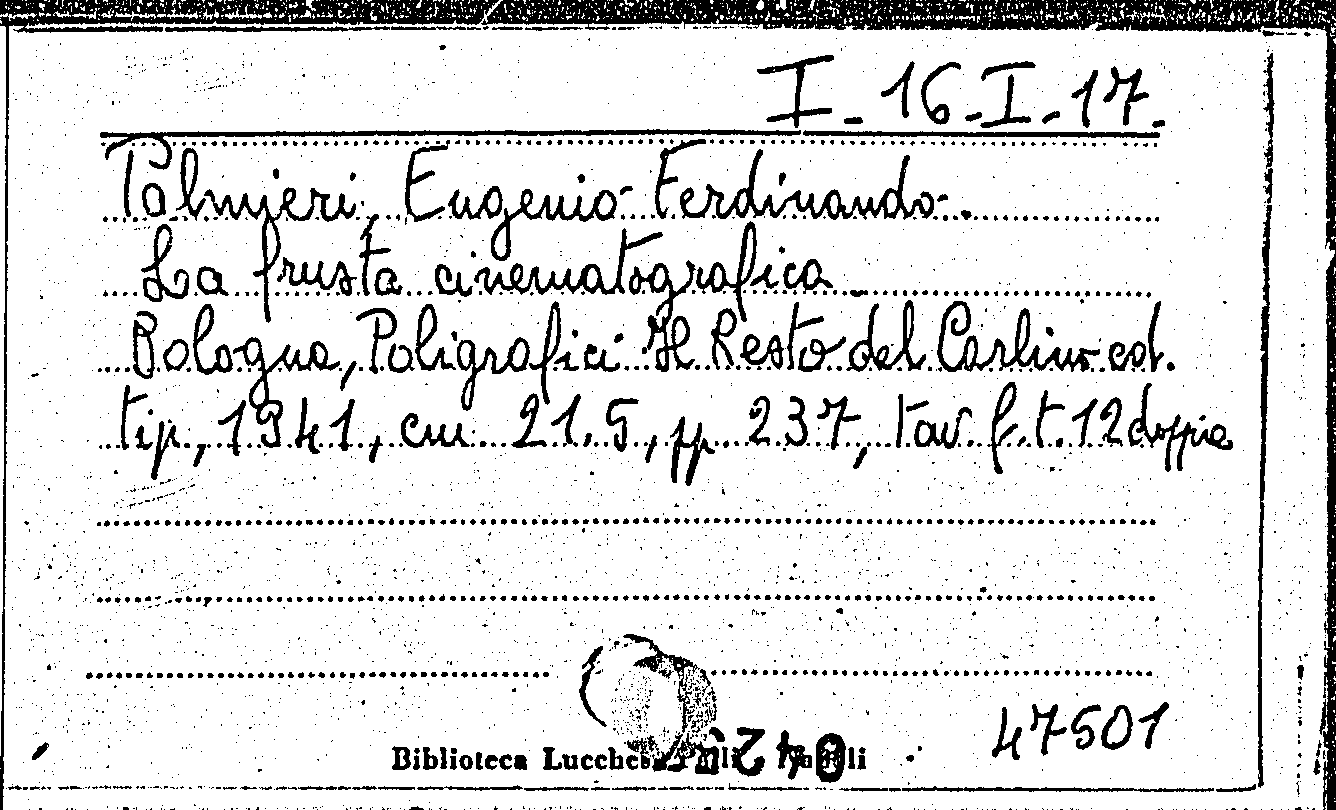 I - 16 - I - 17.
Palmieri, Eugenio Ferdinando.
La frusta cinematografica
Bologna, Poligrafici Il Resto del Carlino ed.
tip., 1941, cm. 21.5, pp. 237, tav. f.t. 12 doppie
47501
Biblioteca